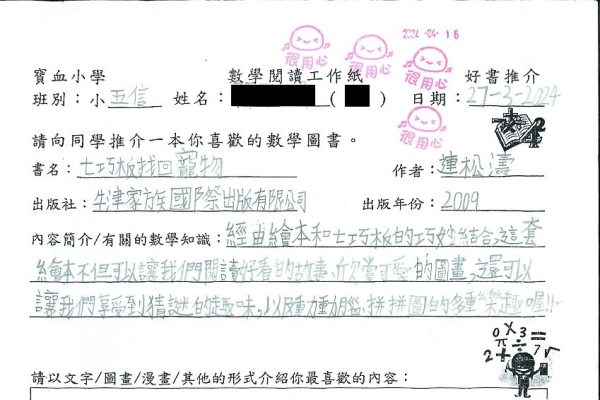 2024-04-16
很用心
很用心
很用心
很用心
寶血小學 數學閱讀工作紙 好書推介
班別：小五信 姓名： ( ) 日期：27-3-2024
請向同學推介一本你喜歡的數學圖書。
書名：七巧板找回寵物 作者：連松濤
出版社：牛津家族國際出版有限公司 出版年份：2009
內容簡介/有關的數學知識：經由繪本和七巧板的巧妙結合，這套
繪本不但可以讓我們閱讀好看的故事、欣賞可愛的圖畫，還可以
讓我們享受到猜謎的趣味，以及動動腦、拼拼圖的多重樂趣喔!!
請以文字/圖畫/漫畫/其他的形式介紹你最喜歡的內容：